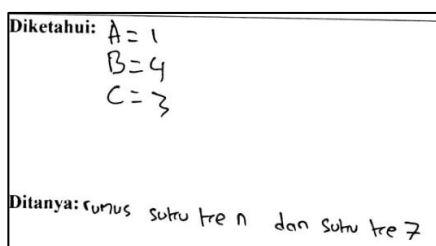 Diketahui: A = 1
B = 4
C = 3
Ditanya: rumus suku ke n dan suku ke 7